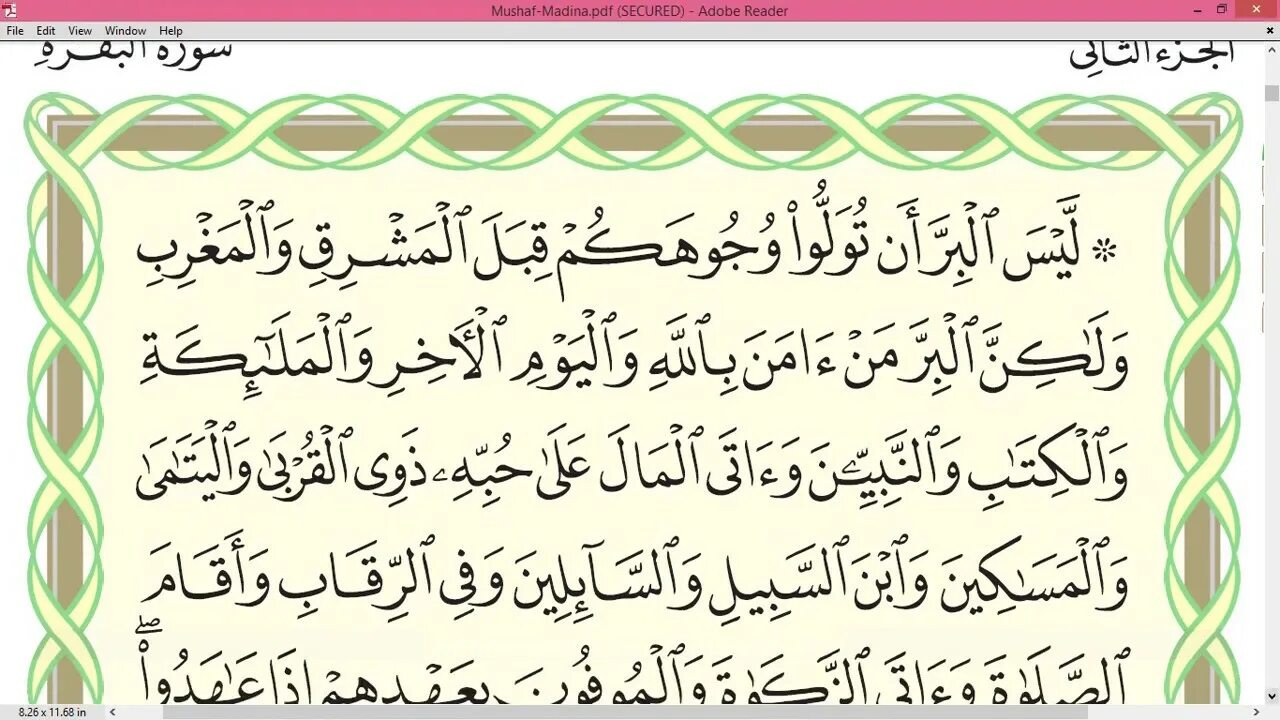 Mushaf-Madina.pdf (SECURED) - Adobe Reader
File Edit View Window Help
الجزء الثاني سورة البقرة
۞ لَّيۡسَ ٱلۡبِرَّ أَن تُوَلُّواْ وُجُوهَكُمۡ قِبَلَ ٱلۡمَشۡرِقِ وَٱلۡمَغۡرِبِ
وَلَٰكِنَّ ٱلۡبِرَّ مَنۡ ءَامَنَ بِٱللَّهِ وَٱلۡيَوۡمِ ٱلۡأٓخِرِ وَٱلۡمَلَٰٓئِكَةِ
وَٱلۡكِتَٰبِ وَٱلنَّبِيِّـۧنَ وَءَاتَى ٱلۡمَالَ عَلَىٰ حُبِّهِۦ ذَوِي ٱلۡقُرۡبَىٰ وَٱلۡيَتَٰمَىٰ
وَٱلۡمَسَٰكِينَ وَٱبۡنَ ٱلسَّبِيلِ وَٱلسَّآئِلِينَ وَفِي ٱلرِّقَابِ وَأَقَامَ
ٱلصَّلَوٰةَ وَءَاتَى ٱلزَّكَوٰةَ وَٱلۡمُوفُونَ بِعَهۡدِهِمۡ إِذَا عَٰهَدُواْۖ
8.26 x 11.68 in